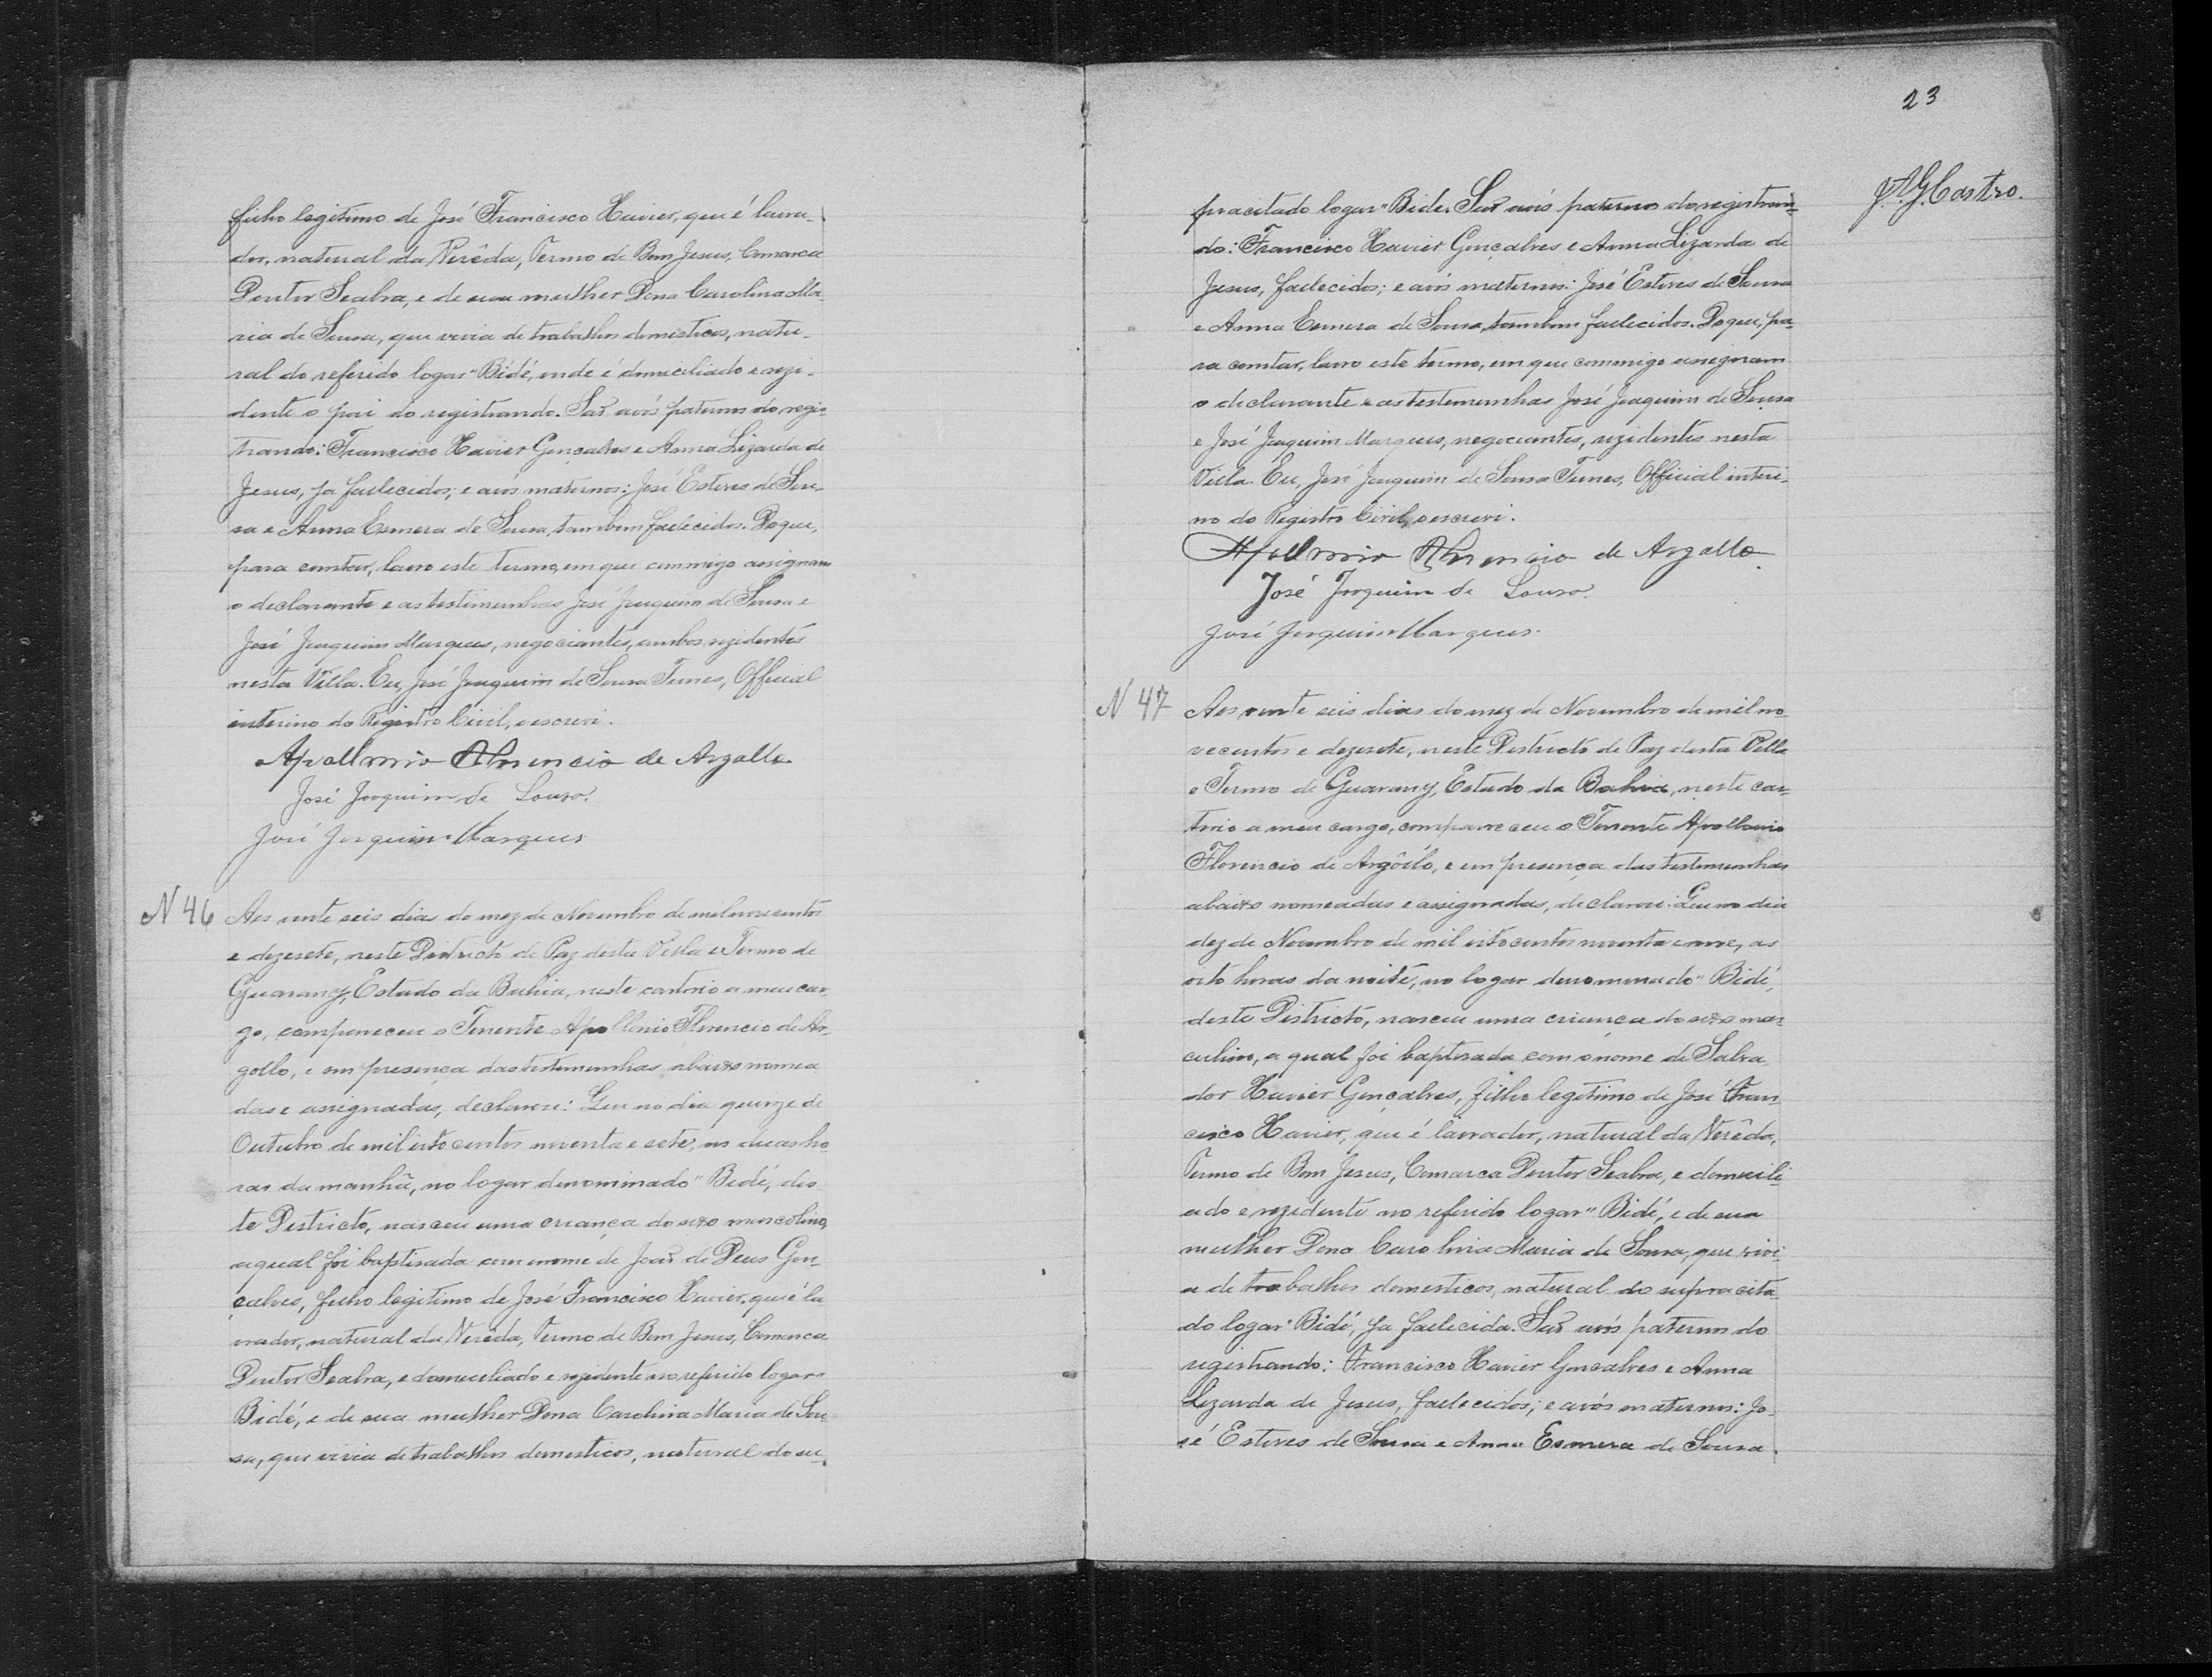 filho legitimo de José Francisco Xavier, que é lavra-
dor, natural da Verêda, Termo de Bom Jesus, Comarca
Doutor Seabra, e de sua mulher Dona Carolina Ma-
ria de Sousa, que vivia de trabalhos domesticos, natu-
ral do referido logar "Bidé, onde é domiciliado e rezi-
dente o pai do registrando. São avós paternos do regis-
trando: Francisco Xavier Gonçalves e Anna Lizarda de
Jesus, ja fallecidos; e avós maternos: José Esteves de Sou-
sa e Anna Esmera de Sousa, tambem fallecidos. Do que,
para constar, lavro este termo, em que commigo assignam
o declarante e as testemunhas José Joaquim de Sousa e
José Joaquim Marques, negociantes, ambos rezidentes
nesta Villa. Eu, José Joaquim de Sousa Tunes, Official
interino do Registro Civil, o escrevi.
Apollonio Florencio de Argollo
José Joaquim de Souza.
José Joaquim Marques
N 46 Aos vinte seis dias do mez de Novembro de mil novecentos
e dezesete, neste Districto de Paz desta Villa e Termo de
Guarany, Estado da Bahia, neste cartorio a meu car-
go, compareceu o Tenente Apollonio Florencio de Ar-
gollo, e em presença das testemunhas abaixo nomea
das e assignadas, declarou: Que no dia quinze de
Outubro de mil oito centos noventa e sete, as duas ho
ras da manhã, no logar denominado "Bidé, des
te Districto, nasceu uma criança do sexo mascolino,
a qual foi baptisada com o nome de João de Deus Gon-
çalves, filho legitimo de José Francisco Xavier, que é la
vrador, natural da Verêda, Termo de Bom Jesus, Comarca
Doutor Seabra, e domeciliado e rezidente no referido logar "
Bidé, e de sua mulher Dona Carolina Maria de Sou
sa, que vivia de trabalhos domesticos, natural do su-
23
J. A. G. Castro.
pracitado logar "Bidé. São avós paternos do registran-
do: Francisco Xavier Gonçalves e Anna Lizarda de
Jesus, fallecidos; e avós maternos: José Esteves de Sousa
e Anna Esmera de Sousa, tambem fallecidos. Do que, pa-
ra constar, lavro este termo, em que commigo assignam
o declarante e as testemunhas José Joaquim de Sousa
e José Joaquim Marques, negociantes, rezidentes nesta
Villa. Eu, José Joaquim de Sousa Tunes, Official interi-
no do Registro Civil, o escrevi.
Apollonio Florencio de Argollo
José Joaquim de Souza.
José Joaquim Marques.
N 47 Aos vinte seis dias do mez de Novembro de mil no
vecentos e dezesete, neste Districto de Paz desta Villa
e Termo de Guarany, Estado da Bahia, neste car-
torio a meu cargo, compareceu o Tenente Apollonio
Florencio de Argôllo, e em presença das testemunhas
abaixo nomeadas e assignadas, declarou: Que no dia
dez de Novembro de mil oitocentos noventa e nove, as
oito horas da noite, no logar denominado "Bidé,
deste Districto, nasceu uma criança do sexo mas-
culino, a qual foi baptisada com o nome de Salva
dor Xavier Gonçalves, filho legitimo de José Fran-
cisco Xavier, que é lavrador, natural da Verêda,
Termo de Bom Jesus, Comarca Doutor Seabra, e domicili-
ado e rezidente no referido logar "Bidé, e de sua
mulher Dona Carolina Maria de Sousa, que vivi-
a de trabalhos domesticos, natural do supracita-
do logar "Bidé, ja fallecida. São avós paternos do
registrando: Francisco Xavier Gonçalves e Anna
Lizarda de Jesus, fallecidos; e avós maternos: Jo-
sé Esteves de Sousa e Anna Esmera de Sousa.